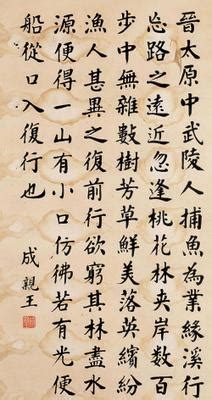 晉太原中武陵人捕魚為業緣溪行
忘路之遠近忽逢桃花林夾岸數百
步中無雜數樹芳草鮮美落英繽紛
漁人甚異之復前行欲窮其林盡水
源便得一山有小口仿彿若有光便
船從口入復行也
成親王